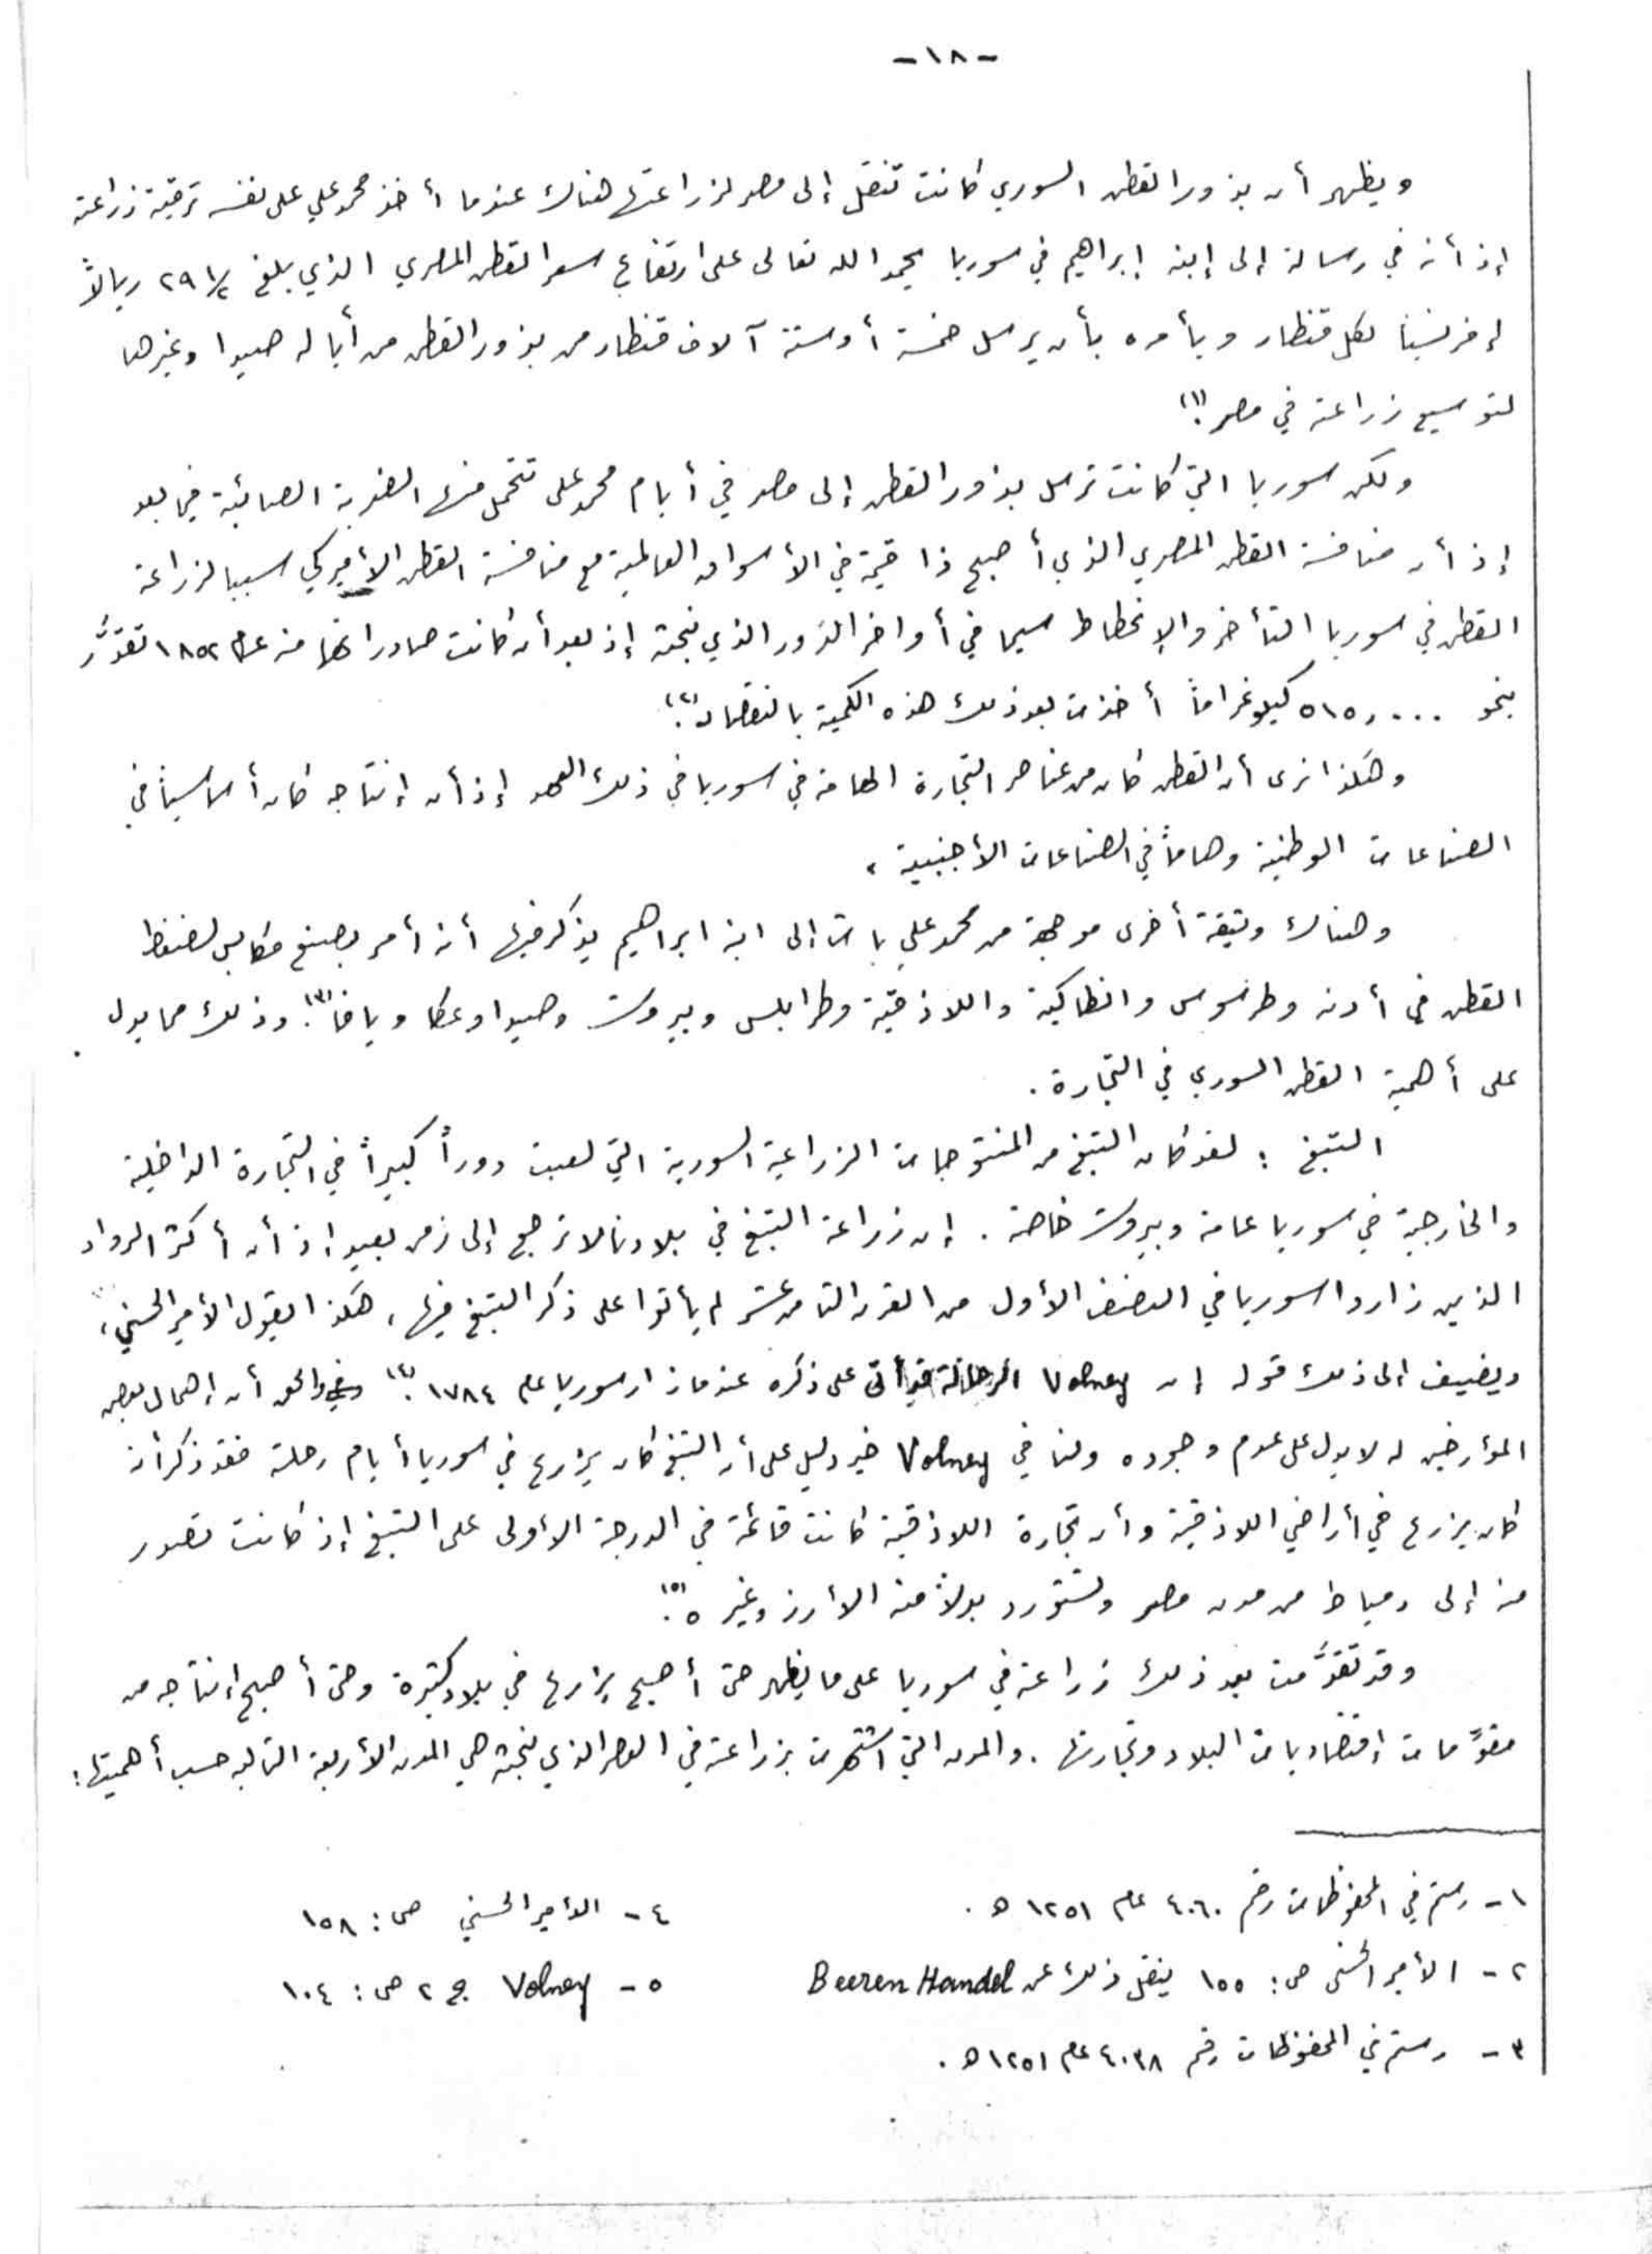 -١٨-
ويظهر أن بذور القطن السوري كانت تنقل إلى مصر لزراعتها هناك عندما أخذ محمد علي على نفسه ترقية زراعته
إذ أنه في رسالة إلى إبنه إبراهيم في سوريا يحمد الله تعالى على ارتفاع سعر القطن المصري الذي بلغ ٢٩ ١/٢ ريالاً
إفرنسيا لكل قنطار ويأمره بأن يرسل خمسة أو ستة آلاف قنطار من بذور القطن من أيالة صيدا وغيرها
لتوسيع زراعته في مصر (١).
ولكن سوريا التي كانت ترسل بذور القطن إلى مصر في أيام محمد علي تتحمل منها الضربة الصائبة فيما بعد
إذ أن منافسة القطن المصري الذي أصبح ذا قيمة في الأسواق العالمية مع منافسة القطن الأميركي سببا لزراعة
القطن في سوريا التأخر والإنحطاط سيما في أواخر الدور الذي نبحثه إذ بعد أن كانت صادراتها منه عام ١٨٥٢ تقدَّر
بنحو ٥١٥,٠٠٠ كيلوغراماً أخذت بعد ذلك هذه الكمية بالنقصان (٢).
وهكذا نرى أن القطن كان من عناصر التجارة الهامة في سوريا في ذلك العهد إذ أن إنتاجه كان أساسياً في
الصناعات الوطنية وهاماً في الصناعات الأجنبية .
وهناك وثيقة أخرى موجهة من محمد علي باشا إلى ابنه ابراهيم يذكر فيها أنه أمر بصنع مكابس لضغط
القطن في أدنه وطرسوس وانطاكية واللاذقية وطرابلس وبيروت وصيدا وعكا ويافا (٣). وذلك مما يدل
على أهمية القطن السوري في التجارة .
التبغ : لقد كان التبغ من المنتوجات الزراعية السورية التي لعبت دوراً كبيراً في التجارة الداخلية
والخارجية في سوريا عامة وبيروت خاصة . إن زراعة التبغ في بلادنا لا ترجع إلى زمن بعيد إذ أن أكثر الرواد
الذين زاروا سوريا في النصف الأول من القرن الثامن عشر لم يأتوا على ذكر التبغ فيها ، هكذا يقول الأمير الحسني ،
ويضيف إلى ذلك قوله إن Volney الرحالة قد أتى على ذكره عندما زار سوريا عام ١٧٨٤ (٤). والحق أن إهمال بعض
المؤرخين له لا يدل على عدم وجوده ولنا في Volney خير دليل على أن التبغ كان يزرع في سوريا أيام رحلته فقد ذكر أنه
كان يزرع في أراضي اللاذقية وأن تجارة اللاذقية كانت قائمة في الدرجة الأولى على التبغ إذ كانت تصدر
منه إلى دمياط من مدن مصر وتستورد بدلاً منه الأرز وغيره (٥).
وقد تقدَّمت بعد ذلك زراعته في سوريا على ما يظهر حتى أصبح يزرع في بلاد كثيرة وحتى أصبح إنتاجه من
مقوِّمات إقتصاديات البلاد وتجارتها . والمدن التي اشتهرت بزراعته في العصر الذي نبحثه هي المدن الأربعة التالية حسب أهميتها :
١- رستم في المحفوظات رقم ٤٠٦٠ عام ١٢٥١ هـ .
٢- الأمير الحسني ص : ١٥٥ ينقل ذلك عن Beeren Handel
٣- رستم في المحفوظات رقم ٤٠٣٨ عام ١٢٥١ هـ .
٤- الأمير الحسني ص : ١٥٨
٥- Volney ج ٢ ص : ١٠٤